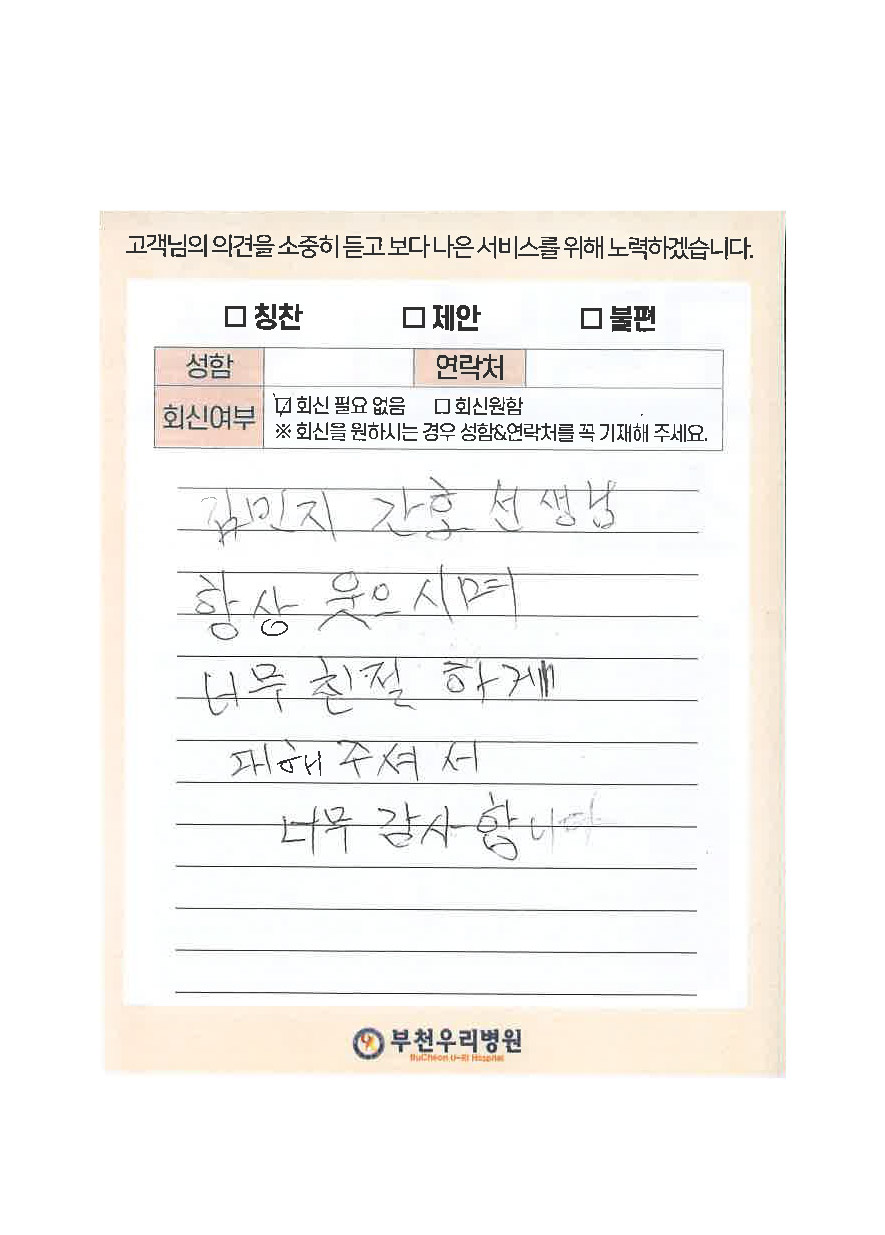 고객님의 의견을 소중히 듣고 보다 나은 서비스를 위해 노력하겠습니다.
□ 칭찬 □ 제안 □ 불편
성함 연락처
회신여부 ☑ 회신 필요 없음 □ 회신원함
※ 회신을 원하시는 경우 성함&연락처를 꼭 기재해 주세요.
김민지 간호 선생님
항상 웃으시며
너무 친절 하게
대해 주셔서
너무 감사 합니다
부천우리병원
BuCheon U-RI Hospital